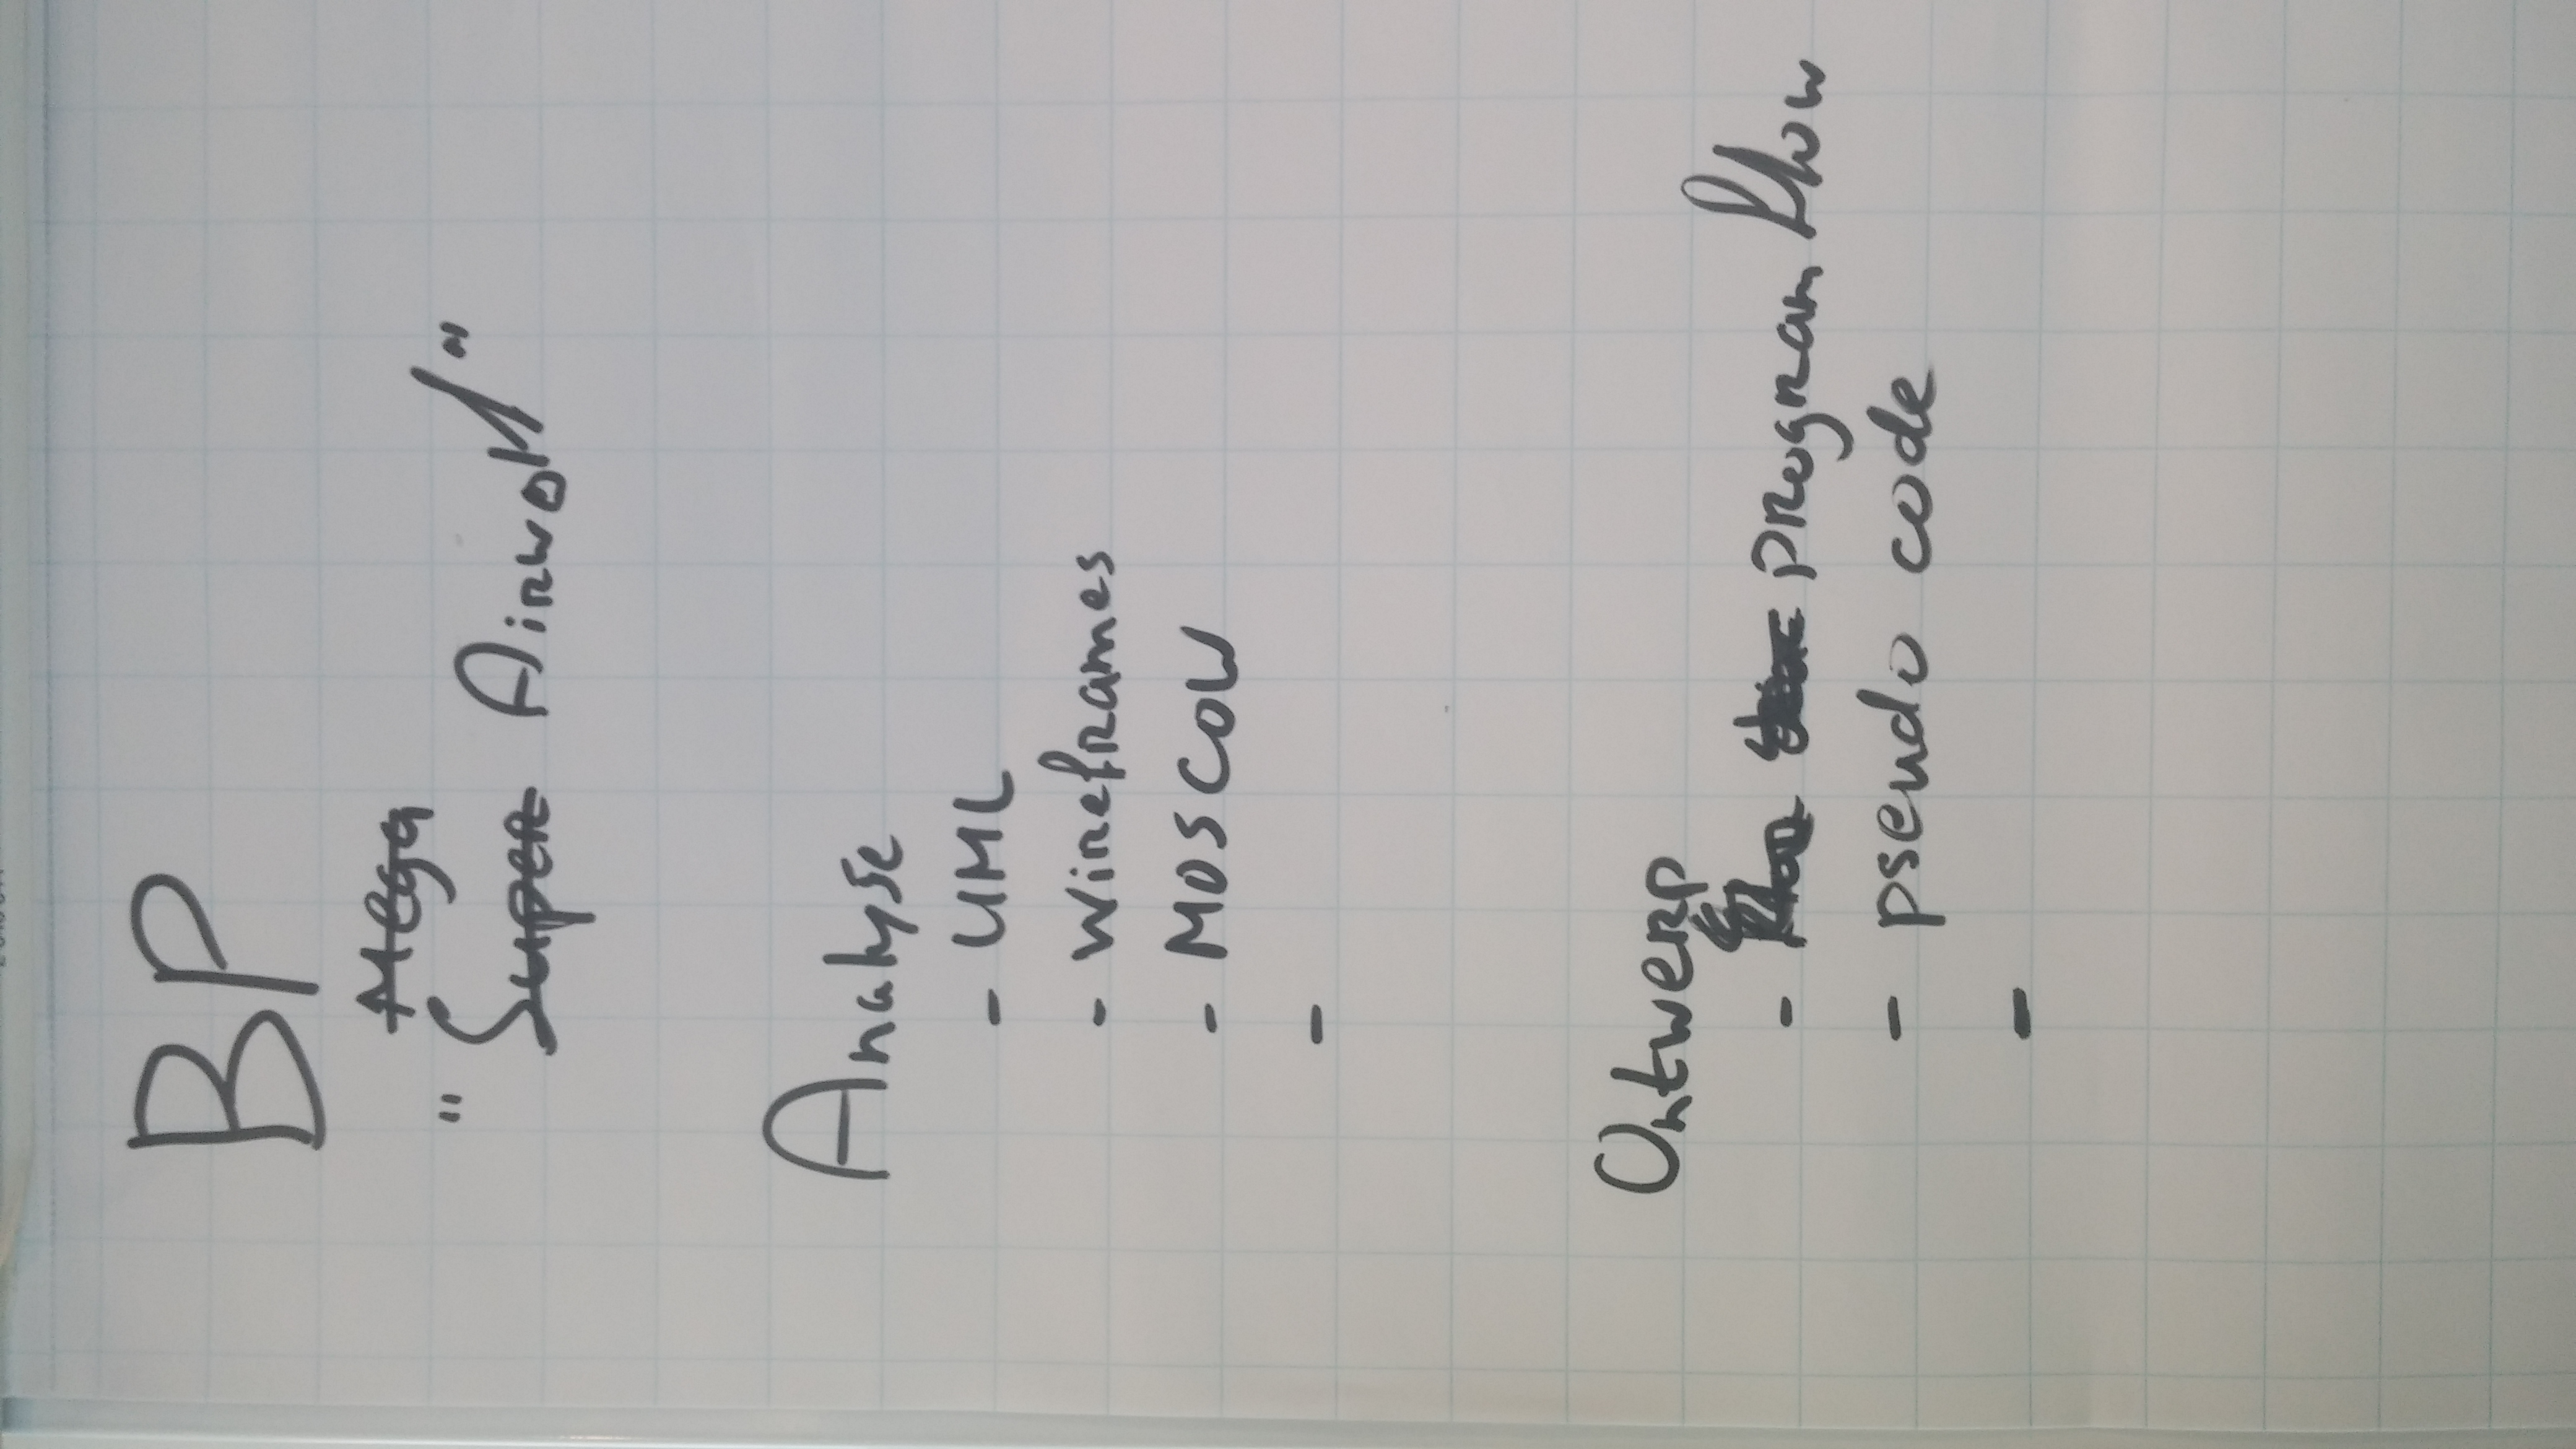 BP
Mega
"Super Airwolf"
Analyse
- UML
- wireframes
- MOSCOW
-
Ontwerp
- program flow
- pseudo code
-